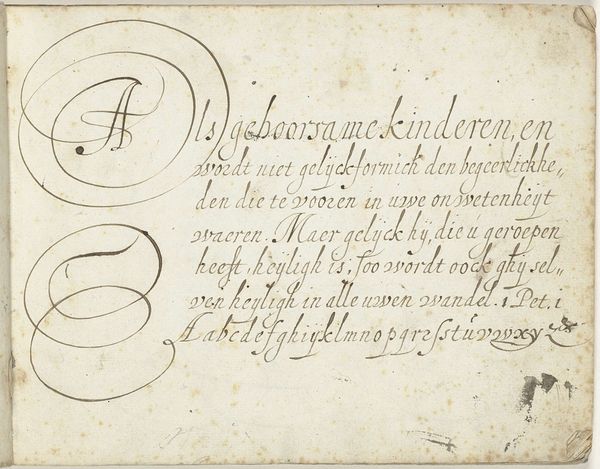 Als gehoorsame kinderen, en
wordt niet gelijckformich den begeerlickhe„
den die te vooren in uwe onwetenheijt
waeren. Maer gelijck hij, die ú geroepen
heeft, heijligh is, soo wordt oock ghij sel„
ven heijligh in alle uwen wandel. 1 Pet. 1
A a b c d e f g h i j k l m n o p q r 2 ſ s t ú v w x y z